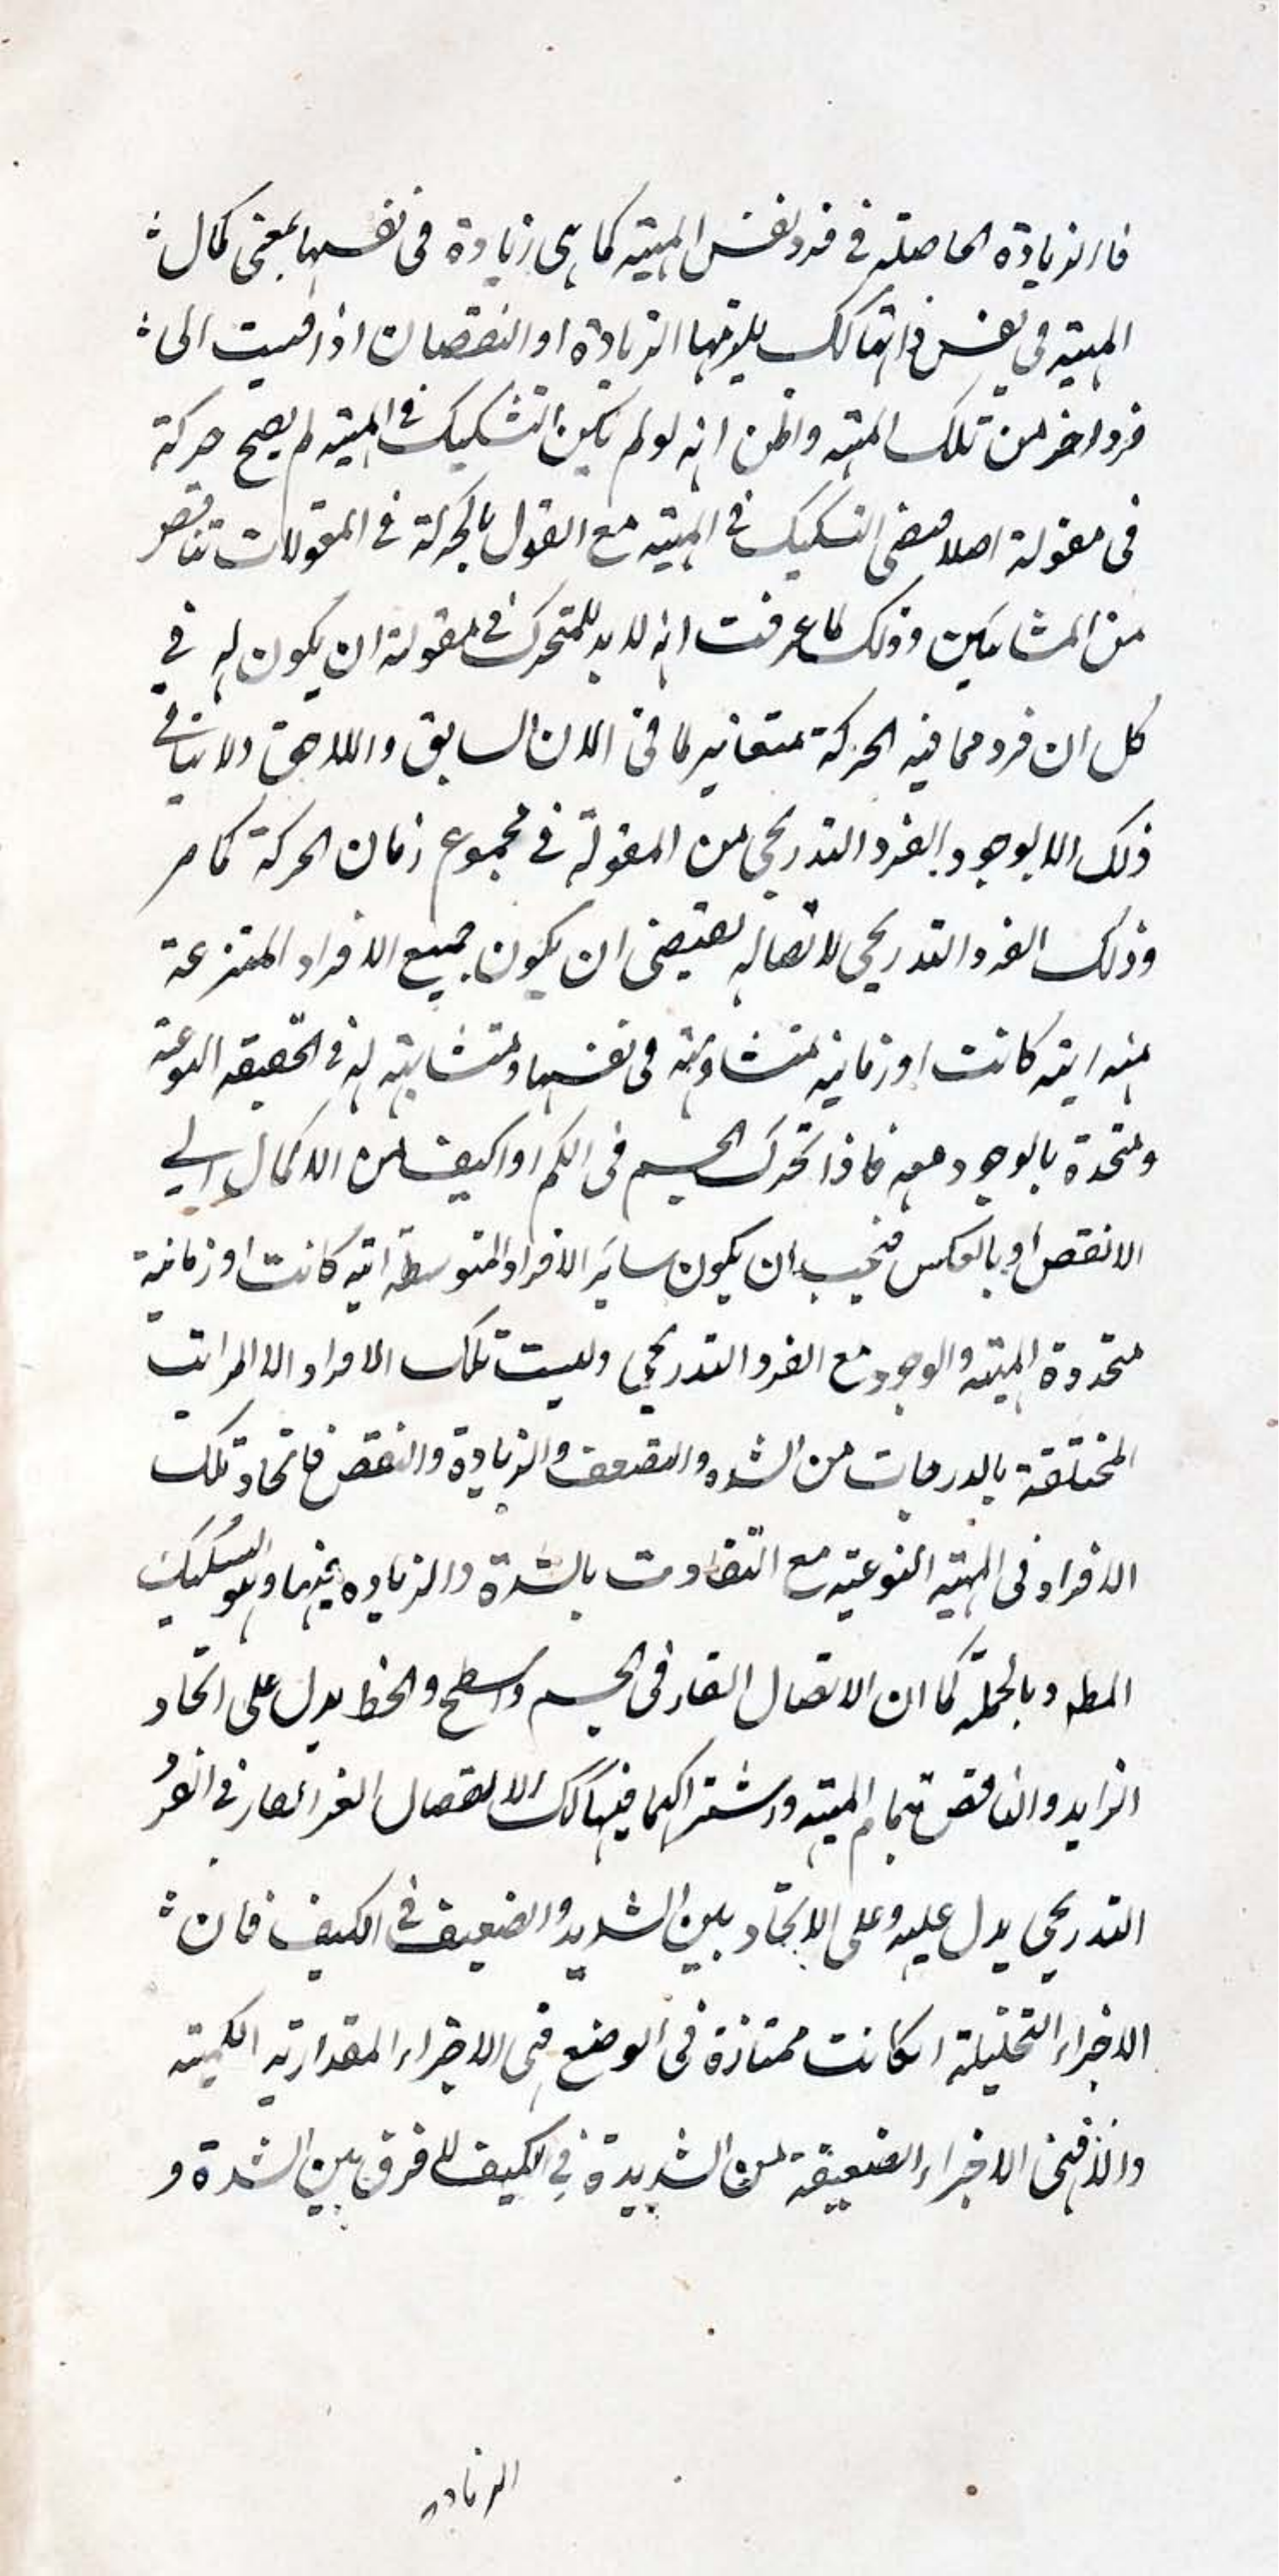 فالزيادة الحاصلة في فرد لنفس المهية كما هي زيادة في نفسها بمعنى كمال
المهية في نفس ذاتها كك يلزمها الزيادة او النقصان اذا قيست الى
فرد اخر من تلك المهية واظن انه لو لم يكن التشكيك في المهية لم يصح حركة
في مقولة اصلا فنفى التشكيك في المهية مع القول بالحركة في المقولات تناقض
من المشائين وذلك لما عرفت انه لابد للمتحرك في مقولة ان يكون له في
كل ان فرد مما فيه الحركة متغاير لما في الان السابق واللاحق ولا يتاتى
ذلك الا بوجود الفرد التدريجي من المقولة في مجموع زمان الحركة كما مر
وذلك الفرد التدريجي لاتصاله يقتضى ان يكون جميع الافراد المنتزعة
منه انية كانت او زمانية متشابهة في نفسها ومتشابهة له في الحقيقة النوعية
ومتحدة بالوجود معه فاذا تحرك الجسم في الكم او الكيف من الاكمال الى
الانقص او بالعكس فيجب ان يكون سائر الافراد المتوسطة انية كانت او زمانية
متحدة المهية والوجود مع الفرد التدريجي وليست تلك الافراد الا المراتب
المختلفة بالدرجات من الشدة والضعف والزيادة والنقص فاتحاد تلك
الافراد في المهية النوعية مع التفاوت بالشدة والزياده بينها وهو التشكيك
المطه وبالجملة كما ان الاتصال القار في الجسم والسطح والخط يدل على اتحاد
الزايد والناقص بتمام المهية واشتراكهما فيها كك الاتصال الغير القار في الفرد
التدريجي يدل عليه وعلى الاتحاد بين الشديد والضعيف في الكيف فان
الاجزاء التحليلة ان كانت ممتازة في الوضع فهى الاجزاء المقدارية الكمية
والا فهى الاجزاء الضعيفة من الشديدة في الكيف فلا فرق بين الشدة و
الزيادة